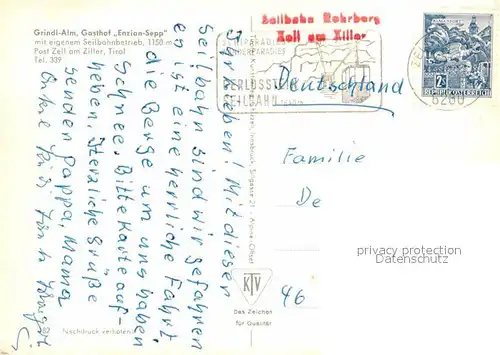 Grindl-Alm, Gasthof „Enzian-Sepp"
mit eigenem Seilbahnbetrieb, 1150 m
Post Zell am Ziller, Tirol
Tel. 339
Seilbahn Rohrberg
Zell am Ziller
SCHIPARADIES
WANDERPARADIES
GERLOSSTEIN
SEILBAHN
Deutschland
ZE
6280
2 S
REPUBLIK ÖSTERREICH
Ihr Lieben! Mit dieser
Seilbahn sind wir gefahren
es ist eine herrliche Fahrt
die Berge um uns haben
Schnee. Bitte Karte auf-
heben. Herzliche Grüße
senden Pappa, Mama
Familie
De
46
Innsbruck, Sillgasse 21
Alpina-Offset
KTV
Das Zeichen
für Qualität
82 Nachdruck verboten
privacy protection
www.ansichtskartenversand.com